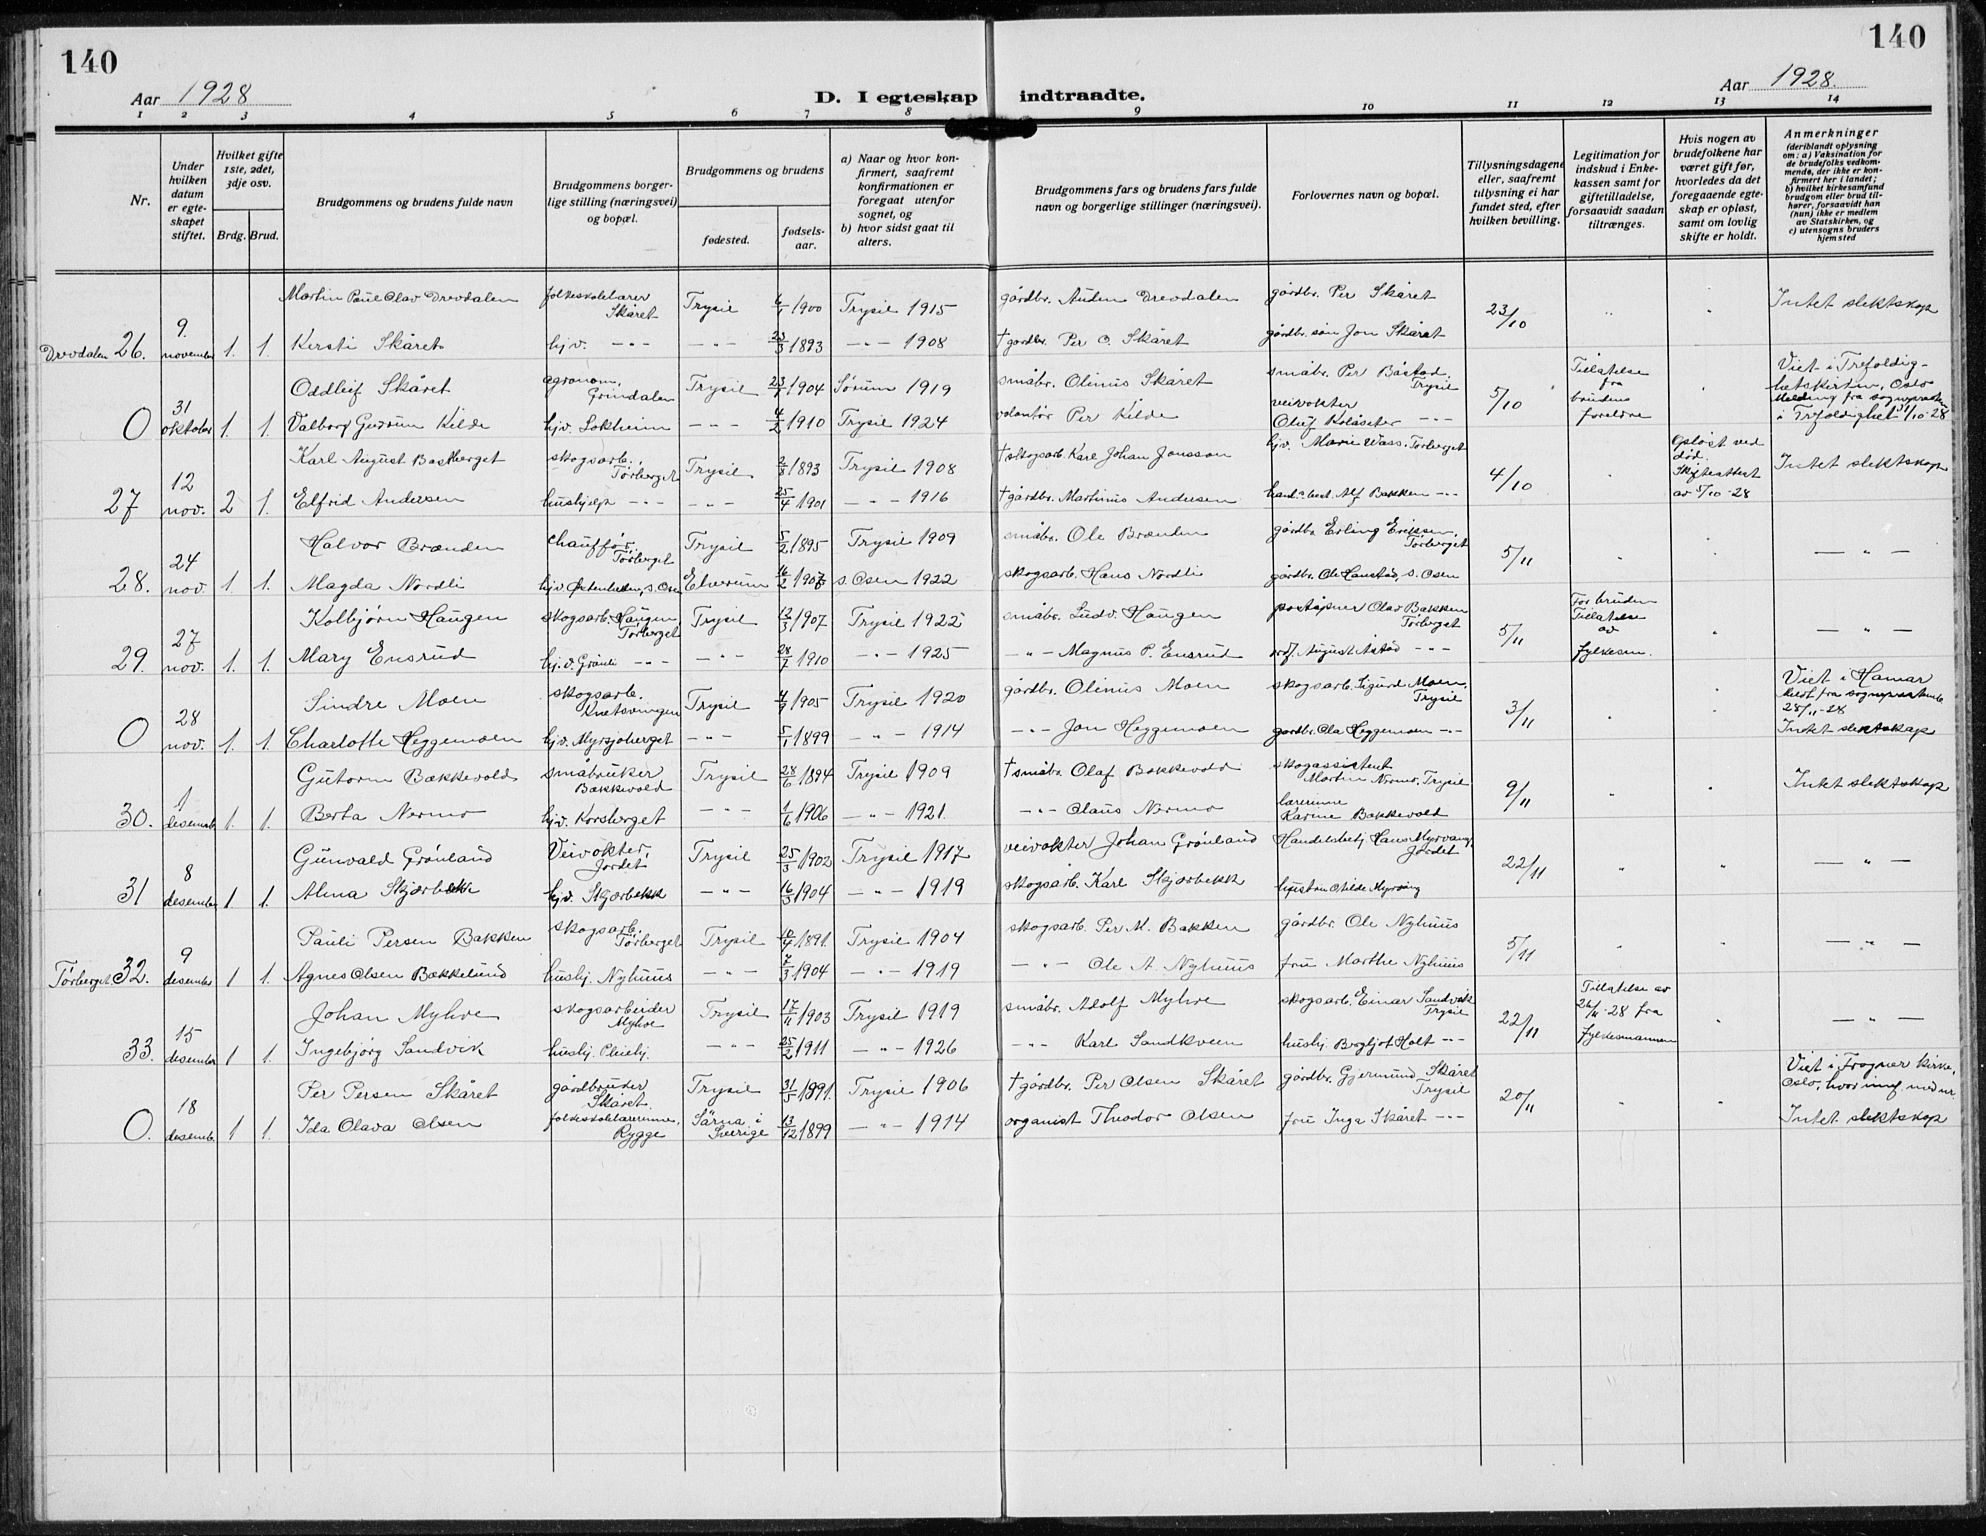 140
140
Aar 1928
D. I egteskap indtraadte.
Aar 1928.
1 2 3 4 5 6 7 8 9 10 11 12 13 14
Nr.
Under hvilken datum er egteskapet stiftet.
Hvilket gifte 1ste, 2det, 3dje osv.
Brdg. Brud.
Brudgommens og brudens fulde navn
Brudgommens borgerlige stilling (næringsvei) og bopæl.
Brudgommens og brudens
fødested.
fødselsaar.
a) Naar og hvor konfirmert, saafremt konfirmationen er foregaat utenfor sognet, og
b) hvor sidst gaat til alters.
Brudgommens fars og brudens fars fulde navn og borgerlige stillinger (næringsvei).
Forlovernes navn og bopæl.
Tillysningsdagene eller, saafremt tillysning ei har fundet sted, efter hvilken bevilling.
Legitimation for indskud i Enkekassen samt for giftetilladelse, forsaavidt saadan tiltrænges.
Hvis nogen av brudefolkene har været gift før, hvorledes da det foregaaende egteskap er opløst, samt om lovlig skifte er holdt.
Anmerkninger (deriblandt oplysning om: a) Vaksination for de brudefolks vedkommende, der ikke er konfirmert her i landet; b) hvilket kirkesamfund brudgom eller brud tilhører, forsaavidt han (hun) ikke er medlem av Statskirken, og c) utensogns bruders hjemsted
Martin Paul Olav Drevdalen folkeskolelærer Skåret Trysil 6/1 1900 Trysil 1915 gårdbr. Auden Drevdalen gårdbr. Per Skåret 23/10 " " Intet slektskap
Drevdalen 26. 9. november 1. 1. Kersti Skåret hjv. - " - - " - 23/3 1893 - " - 1908 † gårdbr. Per O. Skåret gårdbr. søn Jon Skåret
Oddleif Skåret agronom, Grindalen Trysil 23/7 1904 Sørum 1919 småbr. Olinus Skåret småbr. Per Båstad, Trysil 5/10 Tillatelse fra brudens foreldre " Viet i Trefoldighetskirken, Oslo
0 31 oktober 1. 1. Valborg Gudrun Kilde hjv. Lokheim - " - 4/2 1910 Trysil 1924 Per Kilde veivokter Oluf Kolåseter - " - Melding fra sognepresten i Trefoldighet 31/10-28
Karl August Bastberget skogsarb., Tørberget Trysil 2/8 1893 Trysil 1908 † skogsarb. Karl Johan Jonsson hjv. Marie Wass, Tørberget 4/10 " Opløst ved død. Skifteattest av 5/10-28 Intet slektskap
27 12 nov. 2 1. Elfrid Andersen hushjelp - " - - " - 25/4 1901 - " - 1916 † gårdbr. Martinus Andersen Alf Bakken - " -
Halvor Brænden chauffør, Tørberget Trysil 5/2 1895 Trysil 1909 småbr. Ole Brænden gårdbr. Erling Eriksen, Tørberget 5/11 " " - " -
28. 24 nov. 1. 1. Magda Nordli hjv. Østenheden, s. Osen Elverum 16/2 1907 s. Osen 1922 skogsarb. Hans Nordli gårdbr. Ole Hanstad, s. Osen
Kolbjørn Haugen skogsarb. Haugen, Tørberget Trysil 12/3 1907 Trysil 1922 småbr. Ludv. Haugen poståpner Olav Bakken Tørberget 5/11 For bruden Tillatelse av fylkesm. " - " -
29. 27 nov. 1. 1. Mary Ensrud hjv. Grønli - " - - " - 28/7 1910 - " - 1925 - " - Magnus P. Ensrud August Åstad - " -
Sindre Moen skogsarb. Knetsvingen Trysil 4/9 1905 Trysil 1920 gårdbr. Olinus Moen skogsarb. Sigurd Moen, Trysil 3/11 " " Viet i Hamar
0 28 nov. 1. 1. Charlotte Heggemoen hjv. Myrsjøberget - " - 5/1 1899 - " - 1914 - " - Jon Heggemoen gårdbr. Ola Heggemoen - " - fra sognepresten 28/11-28 Intet slektskap
Gutorm Bækkevold småbruker Bækkevold Trysil 28/6 1894 Trysil 1909 † småbr. Olaf Bækkevold skogassistent Martin Nermo, Trysil 9/11 " " Intet slektskap
30. 1 desember 1. 1. Berta Nermo hjv. Korsberget - " - 1/6 1906 - " - 1921. - " - Claus Nermo lærerinne Karine Bækkevold
Gunvald Grønland Veivokter, Jordet Trysil 25/3 1902 Trysil 1917 veivokter Johan Grønland Handelsbetj. Hans Myrvang, Jordet 22/11 " " - " -
31 8 desember 1 1. Alma Skjærbekk hjv. Skjærbekk - " - 16/3 1904 - " - 1919 skogsarb. Karl Skjærbekk hustru Milda Myrvang
Pauli Persen Bakken skogsarb. Tørberget Trysil 10/4 1891. Trysil 1904 skogsarb. Per M. Bakken gårdbr. Ole Nyhuus 5/11 " " - " -
Tørberget 32. 9 desember 1 1. Agnes Olsen Bækkelund hushj. Nyhuus - " - 7/3 1904 - " - 1919 - " - Ole A. Nyhuus fru Marthe Nyhuus
Johan Myhre skogsarbeider Myhre Trysil 17/11 1903 Trysil 1919 småbr. Adolf Myhre skogsarb. Einar Sandvik Trysil 22/11 Tillatelse av 26/11-28 fra fylkesmannen " - " -
33. 15 desember 1 1. Ingebjørg Sandvik hushj. Pleiehj. - " - 25/2 1911 - " - 1926 - " - Karl Sandkveen hushj. Bergljot Holt - " -
Per Persen Skåret gårdbruker Skåret Trysil 31/5 1891. Trysil 1906 † gårdbr. Per Olsen Skåret gårdbr. Gjermund Skåret Trysil 20/11 " " Viet i Frogner kirke, Oslo, hvor innf. med nr.
0. 18 desemb. 1 1. Ida Olava Olsen folkeskolelærerinne, Rygge Särna i Sverige 13/12 1899 - " - 1914 organist Theodor Olsen fru Inga Skåret - " - Intet slektskap